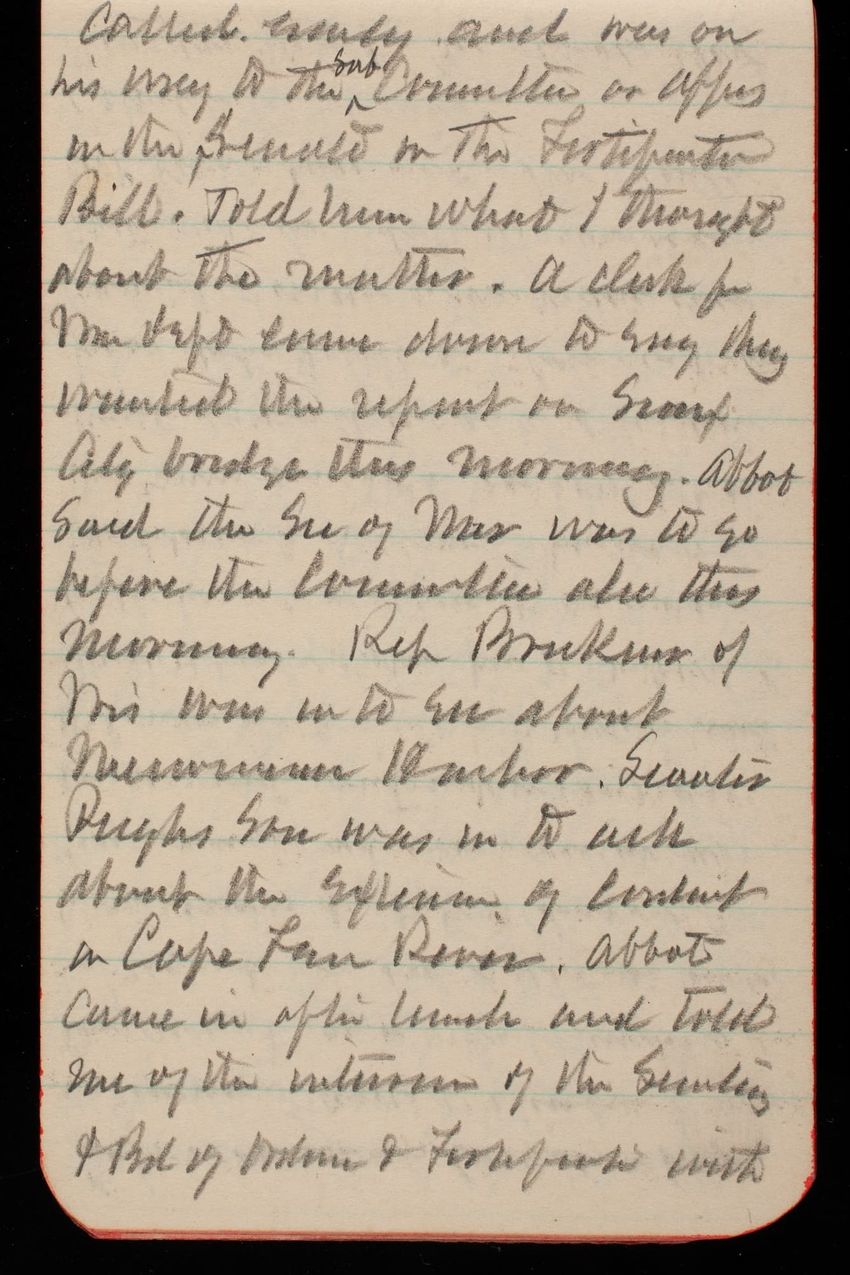 called early and was on
his way to the sub Committee on appns
in the Senate on the Fortification
Bill. Told him what I thought
about the matter. A clerk fr
War Dept came down to say they
wanted the report on Sioux
City bridge this morning. Abbot
said the Sec of War was to go
before the Committee also this
morning. Rep Brickner of
Wis was in to see about
Menominee Harbor. Senator
Pughs Son was in to ask
about the extension of contract
on Cape Fear River. Abbot
came in after lunch and told
me of the interview of the Secretary
& Bd of Ordnce & Fortificatn with